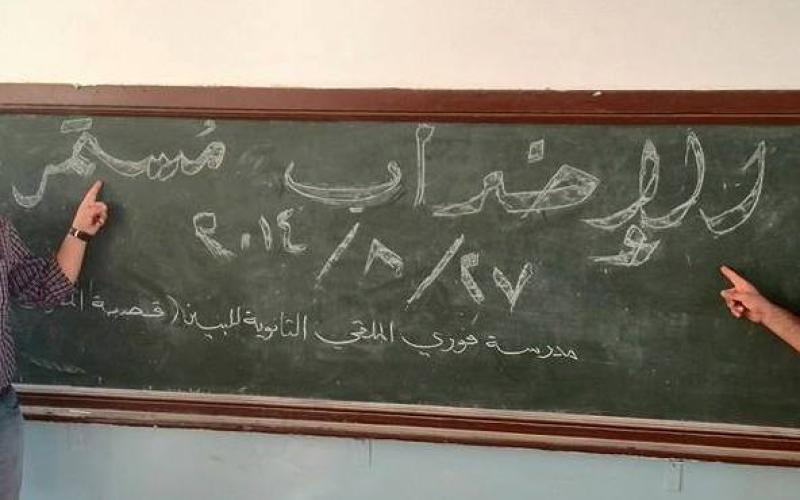 الإضراب مُستمر
٢٧/٨/٢٠١٤
مدرسة فوزي الملقي الثانوية للبنين (قصبة